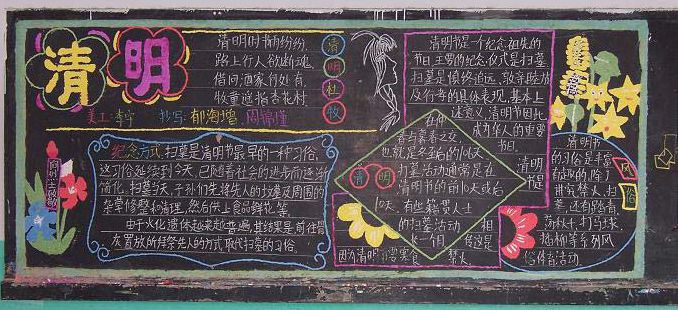 清明
清明时节雨纷纷,
路上行人欲断魂。
借问酒家何处有,
牧童遥指杏花村。
清
明
杜
牧
美工:李宁 抄写:郁海增、周锦瑾
纪念方式:扫墓是清明节最早的一种习俗,
这习俗延续到今天,已随着社会的进步而逐渐
简化。扫墓当天,子孙们先将先人的坟墓及周围的
杂草修整和清理,然后供上食品鲜花等。
由于火化遗体越来越普遍,其结果是前往骨
灰置放的拜祭先人的方式取代扫墓的习俗。
清明节是一个纪念祖先的
节日,主要的纪念仪式是扫墓,
扫墓是慎终追远、敦亲睦族
及行孝的具体表现,基本上
述意义,清明节因此
成为华人的重要
节日。
在仲
春与暮春之交,
也就是冬至后的106天。
清明
扫墓活动通常是在
清明节的前10天或后
10天。有些籍贯人士
的扫墓活动
长一个月
清明
节是
相
传这是
因为清明 寒食 禁火
清明节
的习俗是丰富
有趣的,除了
讲究禁火、扫
墓,还有踏青、
荡秋千、打马球、
插柳等系列风
俗体育活动。
风
俗